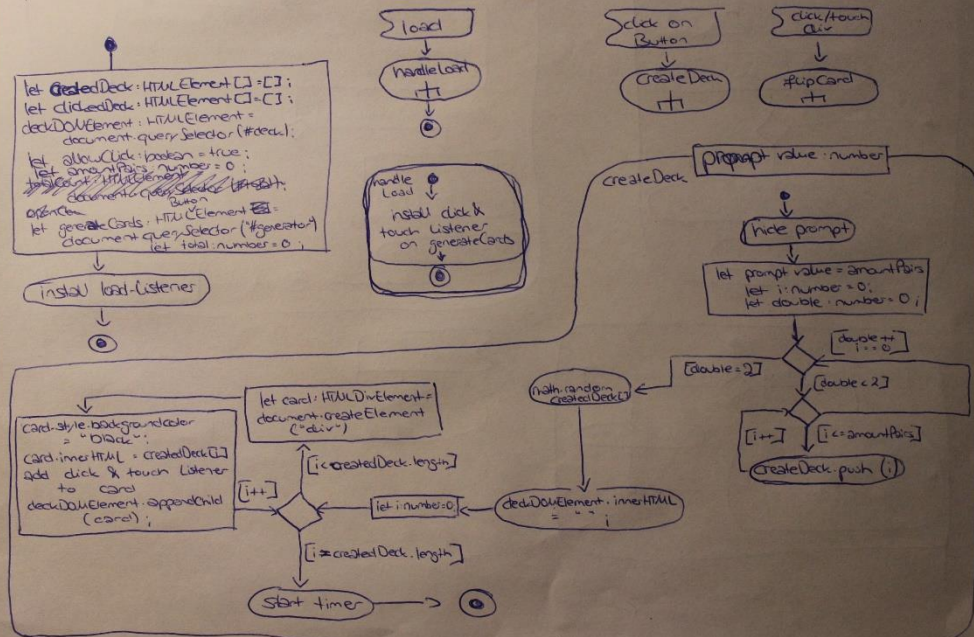 let createdDeck: HTMLElement[]=[];
let clickedDeck: HTMLElement[]=[];
deckDOMElement: HTMLElement=
document.querySelector(#deck);
let allowClick: boolean = true;
let amountPairs: number = 0;
let generateCards: HTMLButtonElement =
document.querySelector("#generator")
let total: number = 0;
install load-Listener
load
handleLoad
click on
Button
createDeck
click/touch
div
flipCard
handle
Load
install click &
touch Listener
on generateCards
createDeck
prompt value: number
hide prompt
let prompt value = amountPairs
let i: number = 0;
let double: number = 0;
[double++
i == 0]
[double=2]
[double<2]
[i++]
[i<=amountPairs]
createDeck.push(i)
math.random
createdDeck[]
deckDOMElement.innerHTML
= " ";
let i: number=0;
[i<createdDeck.length]
let card: HTMLDivElement=
document.createElement
("div")
card.style.backgroundcolor
= "black";
card.innerHTML = createdDeck[i]
add click & touch Listener
to card
deckDOMElement.appendChild
(card);
[i++]
[i=createdDeck.length]
start timer